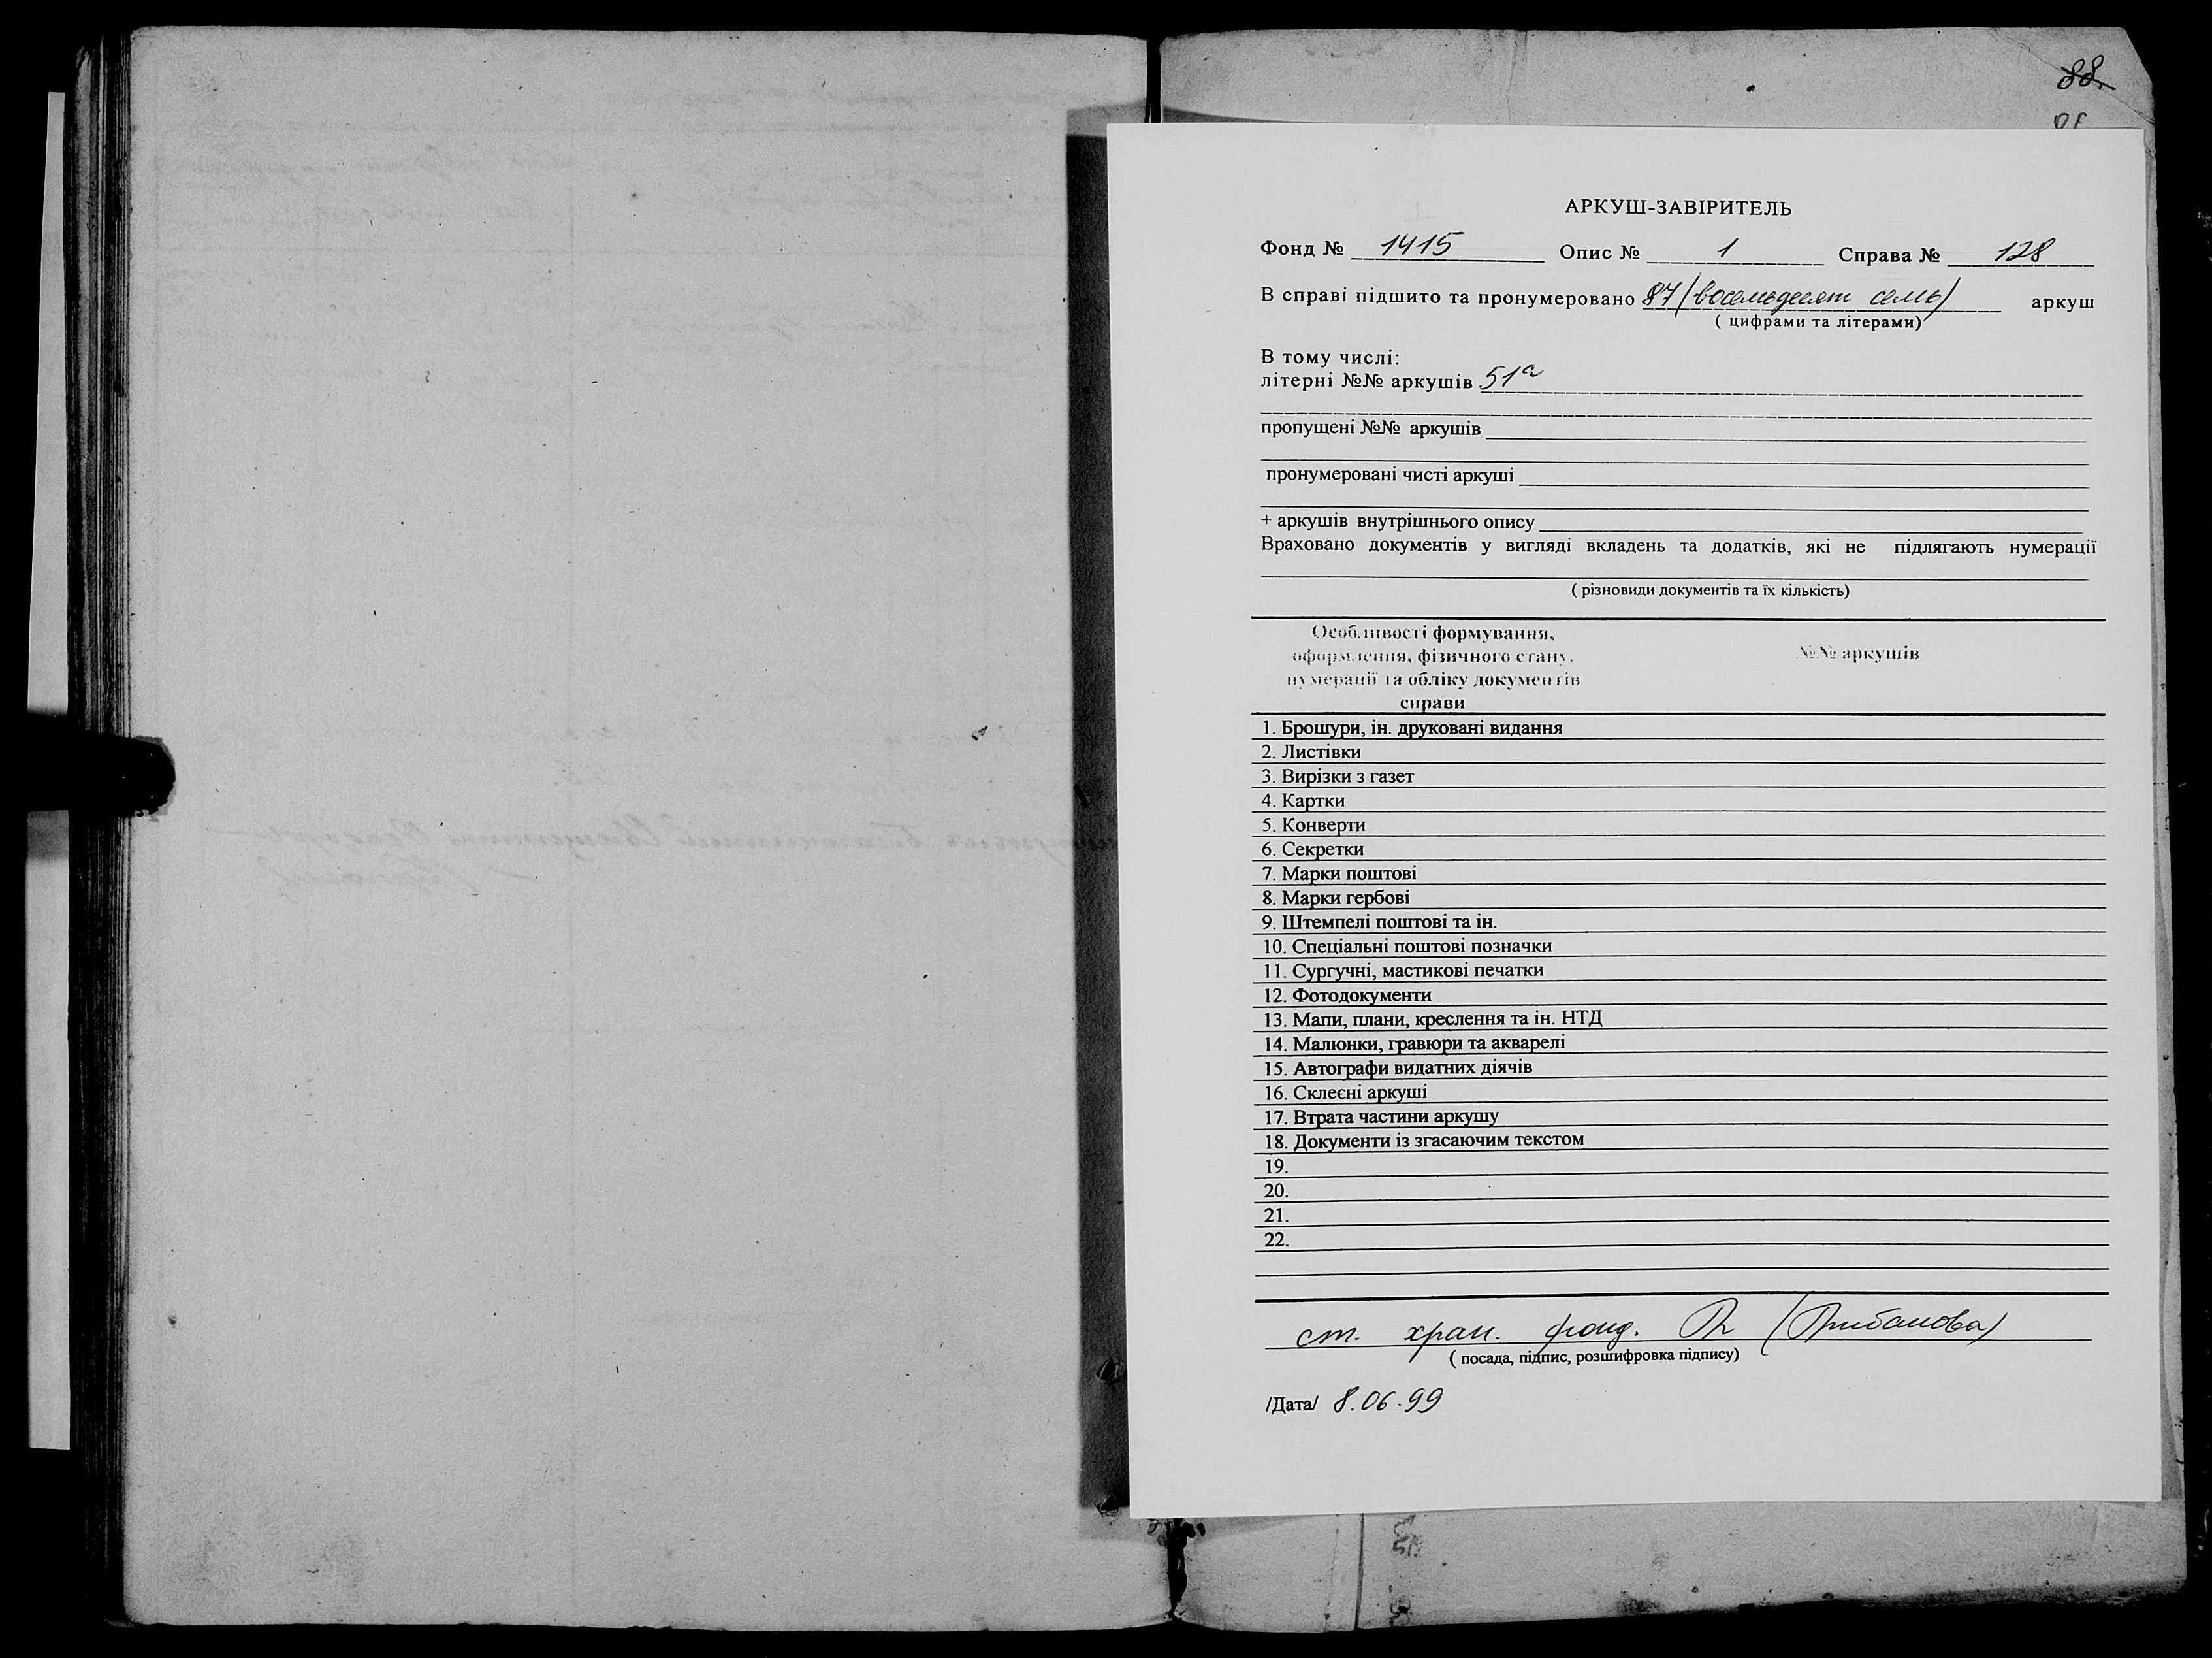 88.
АРКУШ-ЗАВІРИТЕЛЬ
Фонд № 1415 Опис № 1 Справа № 128
В справі підшито та пронумеровано 87 (восемьдесят семь) аркуш
( цифрами та літерами)
В тому числі:
літерні №№ аркушів 51а
пропущені №№ аркушів
пронумеровані чисті аркуші
+ аркушів внутрішнього опису
Враховано документів у вигляді вкладень та додатків, які не підлягають нумерації
( різновиди документів та їх кількість)
Особливості формування, 
оформлення, фізичного стану, №№ аркушів
нумерації та обліку документів
справи
1. Брошури, ін. друковані видання
2. Листівки
3. Вирізки з газет
4. Картки
5. Конверти
6. Секретки
7. Марки поштові
8. Марки гербові
9. Штемпелі поштові та ін.
10. Спеціальні поштові позначки
11. Сургучні, мастикові печатки
12. Фотодокументи
13. Мапи, плани, креслення та ін. НТД
14. Малюнки, гравюри та акварелі
15. Автографи видатних діячів
16. Склеєні аркуші
17. Втрата частини аркушу
18. Документи із згасаючим текстом
19.
20.
21.
22.
ст. хран. фонд.
( посада, підпис, розшифровка підпису)
/Дата/ 8.06.99